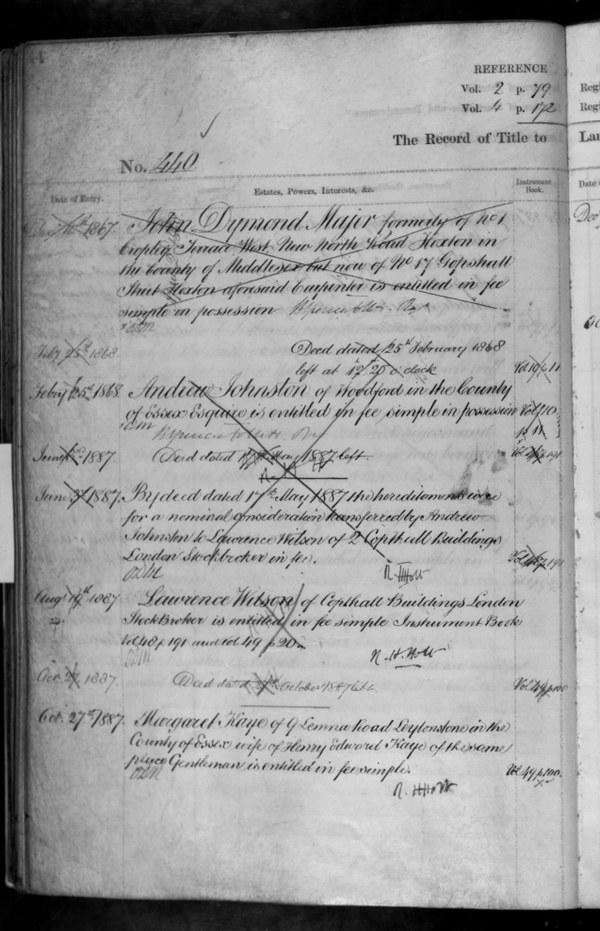 4
REFERENCE
Vol. 2 p. 79
Vol. 4 p. 172
The Record of Title to
No. 440
Date of Entry.
Estates, Powers, Interests, &c.
Instrument Book.
1867. John Dymond Major formerly of No 1
Cropley Terrace West New North Road Hoxton in
the County of Middlesex but now of No 17 Gopshall
Street Hoxton aforesaid Carpenter is entitled in fee
simple in possession
Feby 25th 1868. Deed dated 25th February 1868
left at 12 20 o'clock Vol 10 p 11
Feby 25th 1868. Andrew Johnston of Woodford in the County
of Essex Esquire is entitled in fee simple in possession Vol 10
p 11
June 1887. Deed dated 17th May 1887 left
June 1887. By deed dated 17th May 1887 the hereditaments were
for a nominal consideration transferred by Andrew
Johnston to Lawrence Wilson of 2 Copthall Buildings
London Stockbroker in fee. 191
R. H. Holt
Augt 19th 1887 Lawrence Wilson of Copthall Buildings London
StockBroker is entitled in fee simple Instrument Book
Vol 48 p 191 and Vol 49 p 20
R. H. Holt
Oct. 27 1887. Deed dated October 1887 left Vol 49 p 100
Oct. 27th 1887. Margaret Kaye of 9 Lemna Road Leytonstone in the
County of Essex wife of Henry Edward Kaye of the same
place Gentleman is entitled in fee simple. Vol 49 p 100.
R. H. Holt